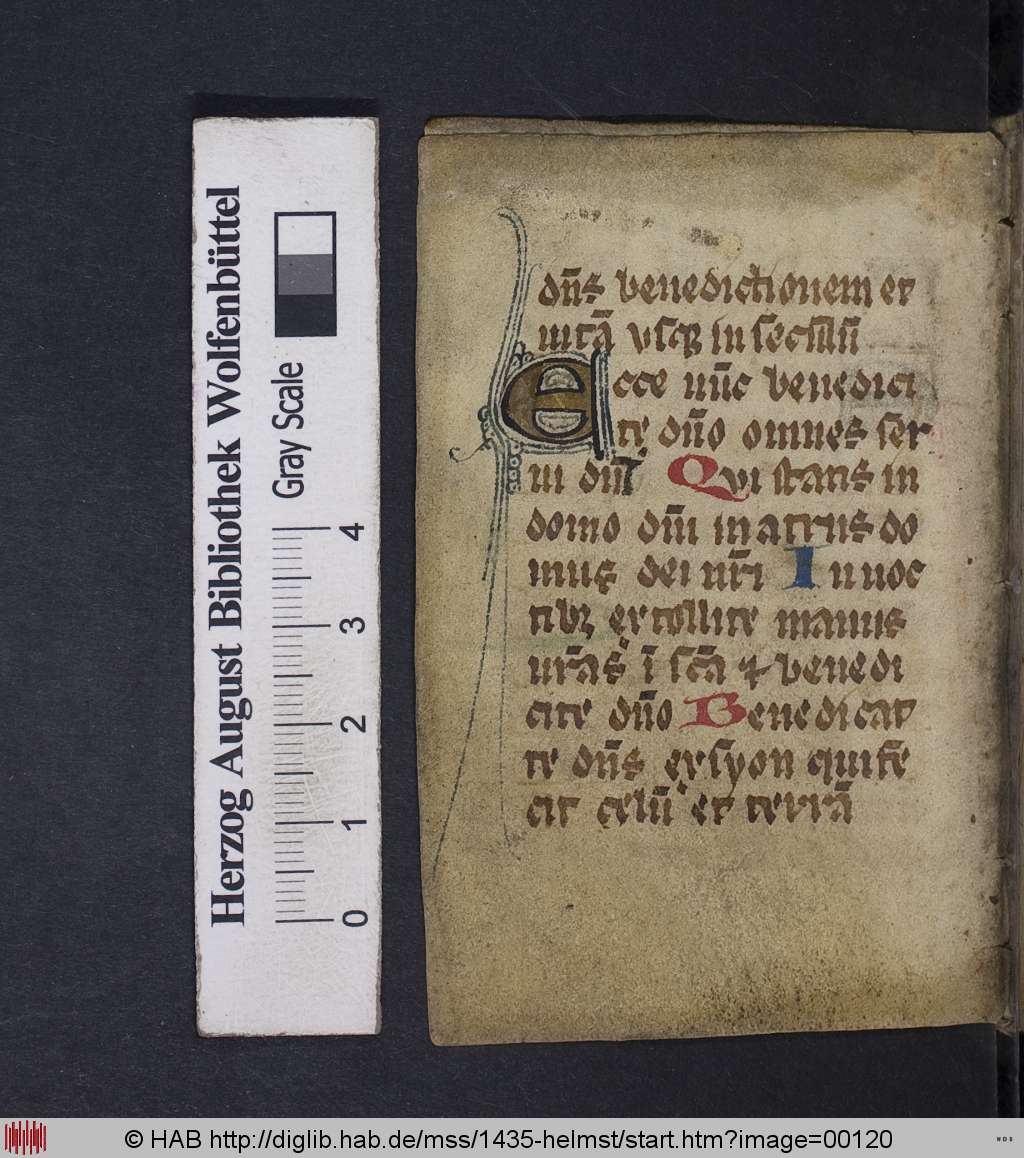 Herzog August Bibliothek Wolfenbüttel
Gray Scale
0 1 2 3 4
dn̄s benedictionem et
uitā vsq in seculū
Ecce nūc benedici
te dn̄o omnes ser
ui dn̄i Qvi statis in
domo dn̄i in atriis do
mus dei nr̄i In noc
tibꝫ extollite manus
ur̄as ī sc̄a ⁊ benedi
cite dn̄o Benedicat
te dn̄s ex syon qui fe
cit celū et terrā
© HAB http://diglib.hab.de/mss/1435-helmst/start.htm?image=00120